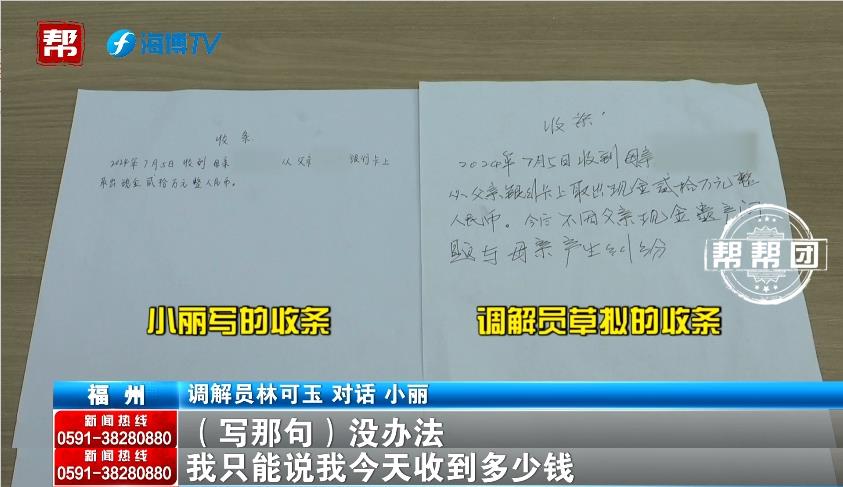 帮 海博TV
收条
2024年7月5日收到母亲 从父亲 银行卡上
取出现金贰拾万元整人民币。
收条
2024年7月5日收到母亲
从父亲银行卡上取出现金贰拾万元整
人民币。今后不因父亲现金遗产问
题与母亲产生纠纷
帮帮团
小丽写的收条
调解员草拟的收条
福州 调解员林可玉 对话 小丽
新闻热线
0591-38280880
(写那句)没办法
新闻热线
0591-38280880
我只能说我今天收到多少钱